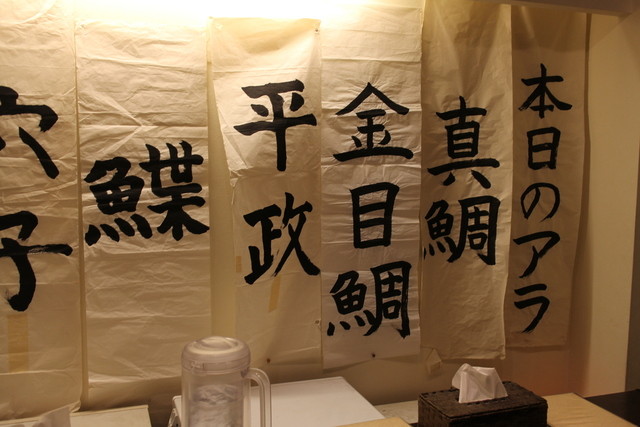 本日のアラ
真鯛
金目鯛
平政
鰈
穴子